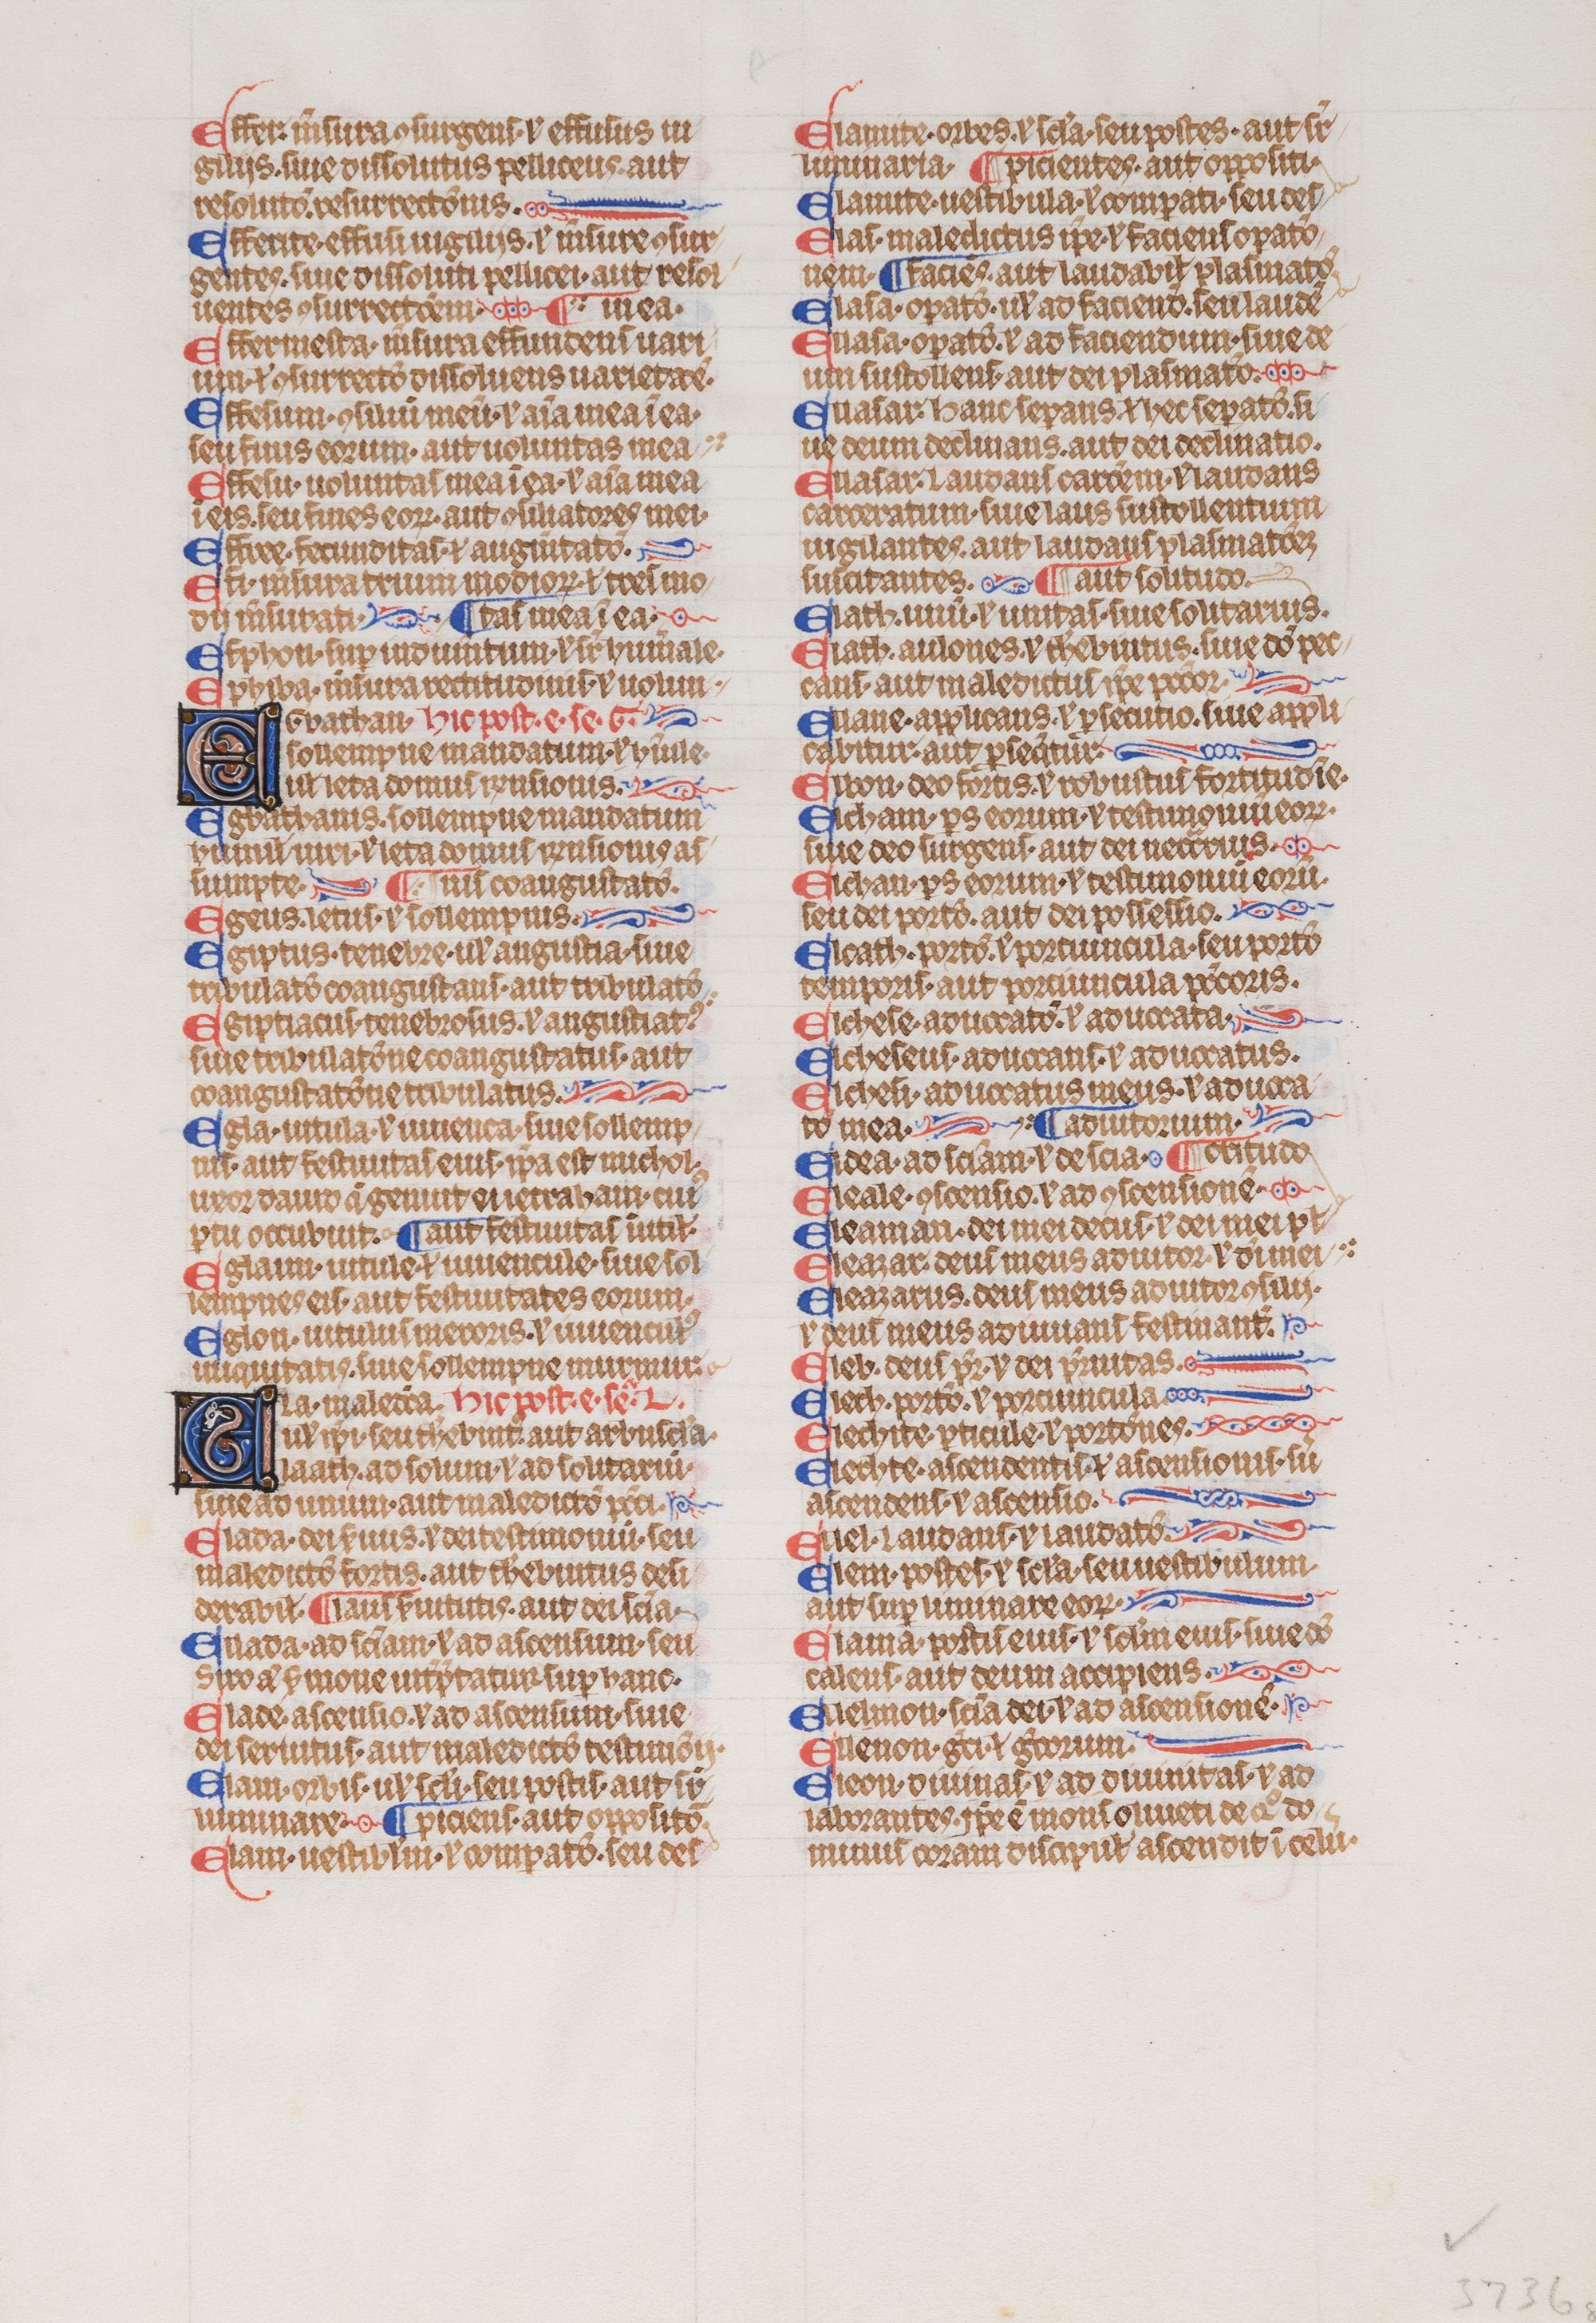 Effer. m̄sura ꝯsurgens. ⁊ effusus ui
gilijs. siue dissolutus pelliceus. aut
resolutō. resurrectōnis.
Efferite. effusi uigilijs. ⁊ m̄sure ꝯsur
gentes. siue dissoluti pellicei. aut resol
uentes ꝯsurrectōem. ¶ mea.
Effermesta. m̄sura effundens uari
um. ⁊ ꝯsurrectō dissoluens uarietatē.
Effesum. ꝯsiliū meū. ⁊ aīa mea ī ea.
seu finis eorum. aut uoluntas mea
Effesu. uoluntas mea ī ea. ⁊ aīa mea
ī eis. seu fines eoꝝ. aut ꝯsiliatores mei.
Effree. fecunditas. ⁊ augm̄tatō.
Efi. m̄sura trium modioꝝ. ⁊ tres mo
dij m̄surati. ¶ tas mea ī ea.
Efphon. suꝑ indumtum. ⁊ sr̄ humale.
Ephiba. m̄sura rectitudinis. ⁊ uolun
EGbathan. hic post. e. se. G.
sollempne mandatum. ⁊
ul̄ leta domus
Egbathanis. sollempne mandatum
uiri. ⁊ leta domus as
sumpte. ¶ nis coangustatō.
Egeus. letus. ⁊ sollempnis.
Egiptus. tenebre. ul̄ angustia. siue
tribulatō coangustans. aut tribulatō
Egiptiacus. tenebrosus. ⁊ angustiatꝰ.
siue tribulatōne coangustatus. aut
coangustatōne tribulatus.
Egla. uitula. ⁊ iuuenca. siue sollemp
nis. aut festiuitas eius. ip̄a est michol.
uxor dauid q̄ genuit en ietraham. cuiꝰ
ꝑtu occubuit. ¶ aut festiuitas
Eglaim. uitule. ⁊ iuuencule. siue sol
lempnes eis. aut festiuitates eorum.
Eglon. uitulus meroris. ⁊ iuuenculꝰ
iniquitatis. siue sollempne murmur.
ELa. maledcā. hic post. e. se. L.
ul̄ ip̄i. seu therbintꝰ. aut arbuscl̄a.
Elaath. ad solum. ⁊ ad solitariū.
siue ad unum. aut maledictō
Elada. dei ⁊ dei testimoniū. seu
maledictō fortis. aut therbintus desi
derabil̄. ¶ aut dei scīa.
Eliada. ad scīam. ⁊ ad ascensum. seu
syro suꝑ hanc.
Elade. ascensio. ⁊ ad ascensum. siue
dei seruitus. aut maledictō testimōij.
Elam. orbis. ul̄ scl̄i. seu postis. aut sr̄
liminare. ¶ piciens. aut oppositō.
Elam. uestibl̄m. ⁊ comparatō. seu des
Elamite. orbes. ⁊ scl̄a. seu postes. aut sr̄
luminaria. ¶ picientes. aut oppositi.
Elamite. uestibula. ⁊ comparati. seu des
Elas. maledictus ip̄e. ⁊ faciens opatō
nem. ¶ facies. aut laudabil̄ plasmatō.
Elasa. opatō. ul̄ ad faciendō. seu laudē
Eliasa. opatō. ⁊ ad faciendum. siue de
um sustollens. aut dei plasmatō.
Eliasar. hanc seꝑans. ⁊ hec seꝑatō. si
ue deum declinans. aut dei declinatio.
Eliasar. Laudans carcērem. ⁊ laudans
carceratum. siue laus sustollentium
uigilantes. aut laudans plasmatōem
suscitantes. ¶ aut solitudo.
Elath. unū. ⁊ unitas. siue solitarius.
Elath. aulones. ⁊ therbintus. siue dō pec
cans. aut maledictus ip̄e
Eliane. applicans. ⁊ ꝑsecutio. siue appli
cabitur. aut ꝑseq̄tur.
Elbon. deo fortis. ⁊ robustus fortitudīe.
Elcham. ꝑs eorum. ⁊ testimoniū eoꝝ.
siue deo surgens. aut dei
Elchan. ꝑs eorum. ⁊ testimoniū eorū.
seu dei portō. aut dei possessio.
Elcath. portō. ⁊ portiuncula. seu portō
temporis. aut portiuncula peccoris.
Elchese. aduocatō. ⁊ aduocata.
Elcheseus. aduocans. ⁊ aduocatus.
Elchesi. aduocatus meus. ⁊ aduoca
tō mea. ¶ adiutorium.
Eldea. ad scīam. ⁊ de scīa. ¶ critudo
Eleale. ꝯscensio. ⁊ ad ꝯscensionē.
Eleaman. dei mei decus. ⁊ dei mei pl̄
Eleazar. deus meus adiutor. ⁊ dī mei
Eleazarus. deus meus adiutor ꝯsilij.
⁊ deus meus adiuuans festinantꝰ.
Elieb. deus pr̄. ⁊ dei pr̄nitas.
Elech. portō. ⁊ portiuncula.
Elechite. ꝑticule. ⁊ portōnes.
Elechte. ascendentis. ⁊ ascensionis. siī
ascendens. ⁊ ascensio.
Eliel. Laudans. ⁊ laudatō.
Elem. postes. ⁊ scl̄a. seu uestibulum.
aut suꝑ liminare eoꝝ.
Elama. postis eius. ⁊ scl̄m eius. siue dō
calens. aut deum accipiens.
Elielmon. scīa dei. ⁊ ad ascensionē.
Ellenon. gc̄i. ⁊ gc̄orum.
Eleon. diuinas. ⁊ ad diuinitas. ⁊ ad
laborantes. ip̄e ē mons oliueti de qͦ do
minus coram discipul̄ ascendit ī celū.
3736